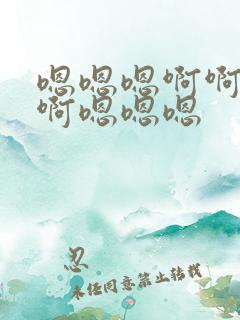 嗯嗯嗯啊啊
啊嗯嗯嗯
忍
未经同意禁止转载